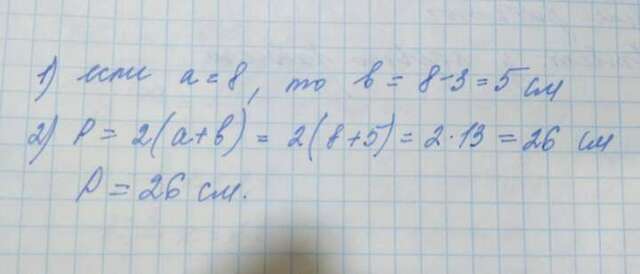 1) если a = 8, то b = 8-3 = 5 см
2) P = 2(a+b) = 2(8+5) = 2·13 = 26 см
P = 26 см.